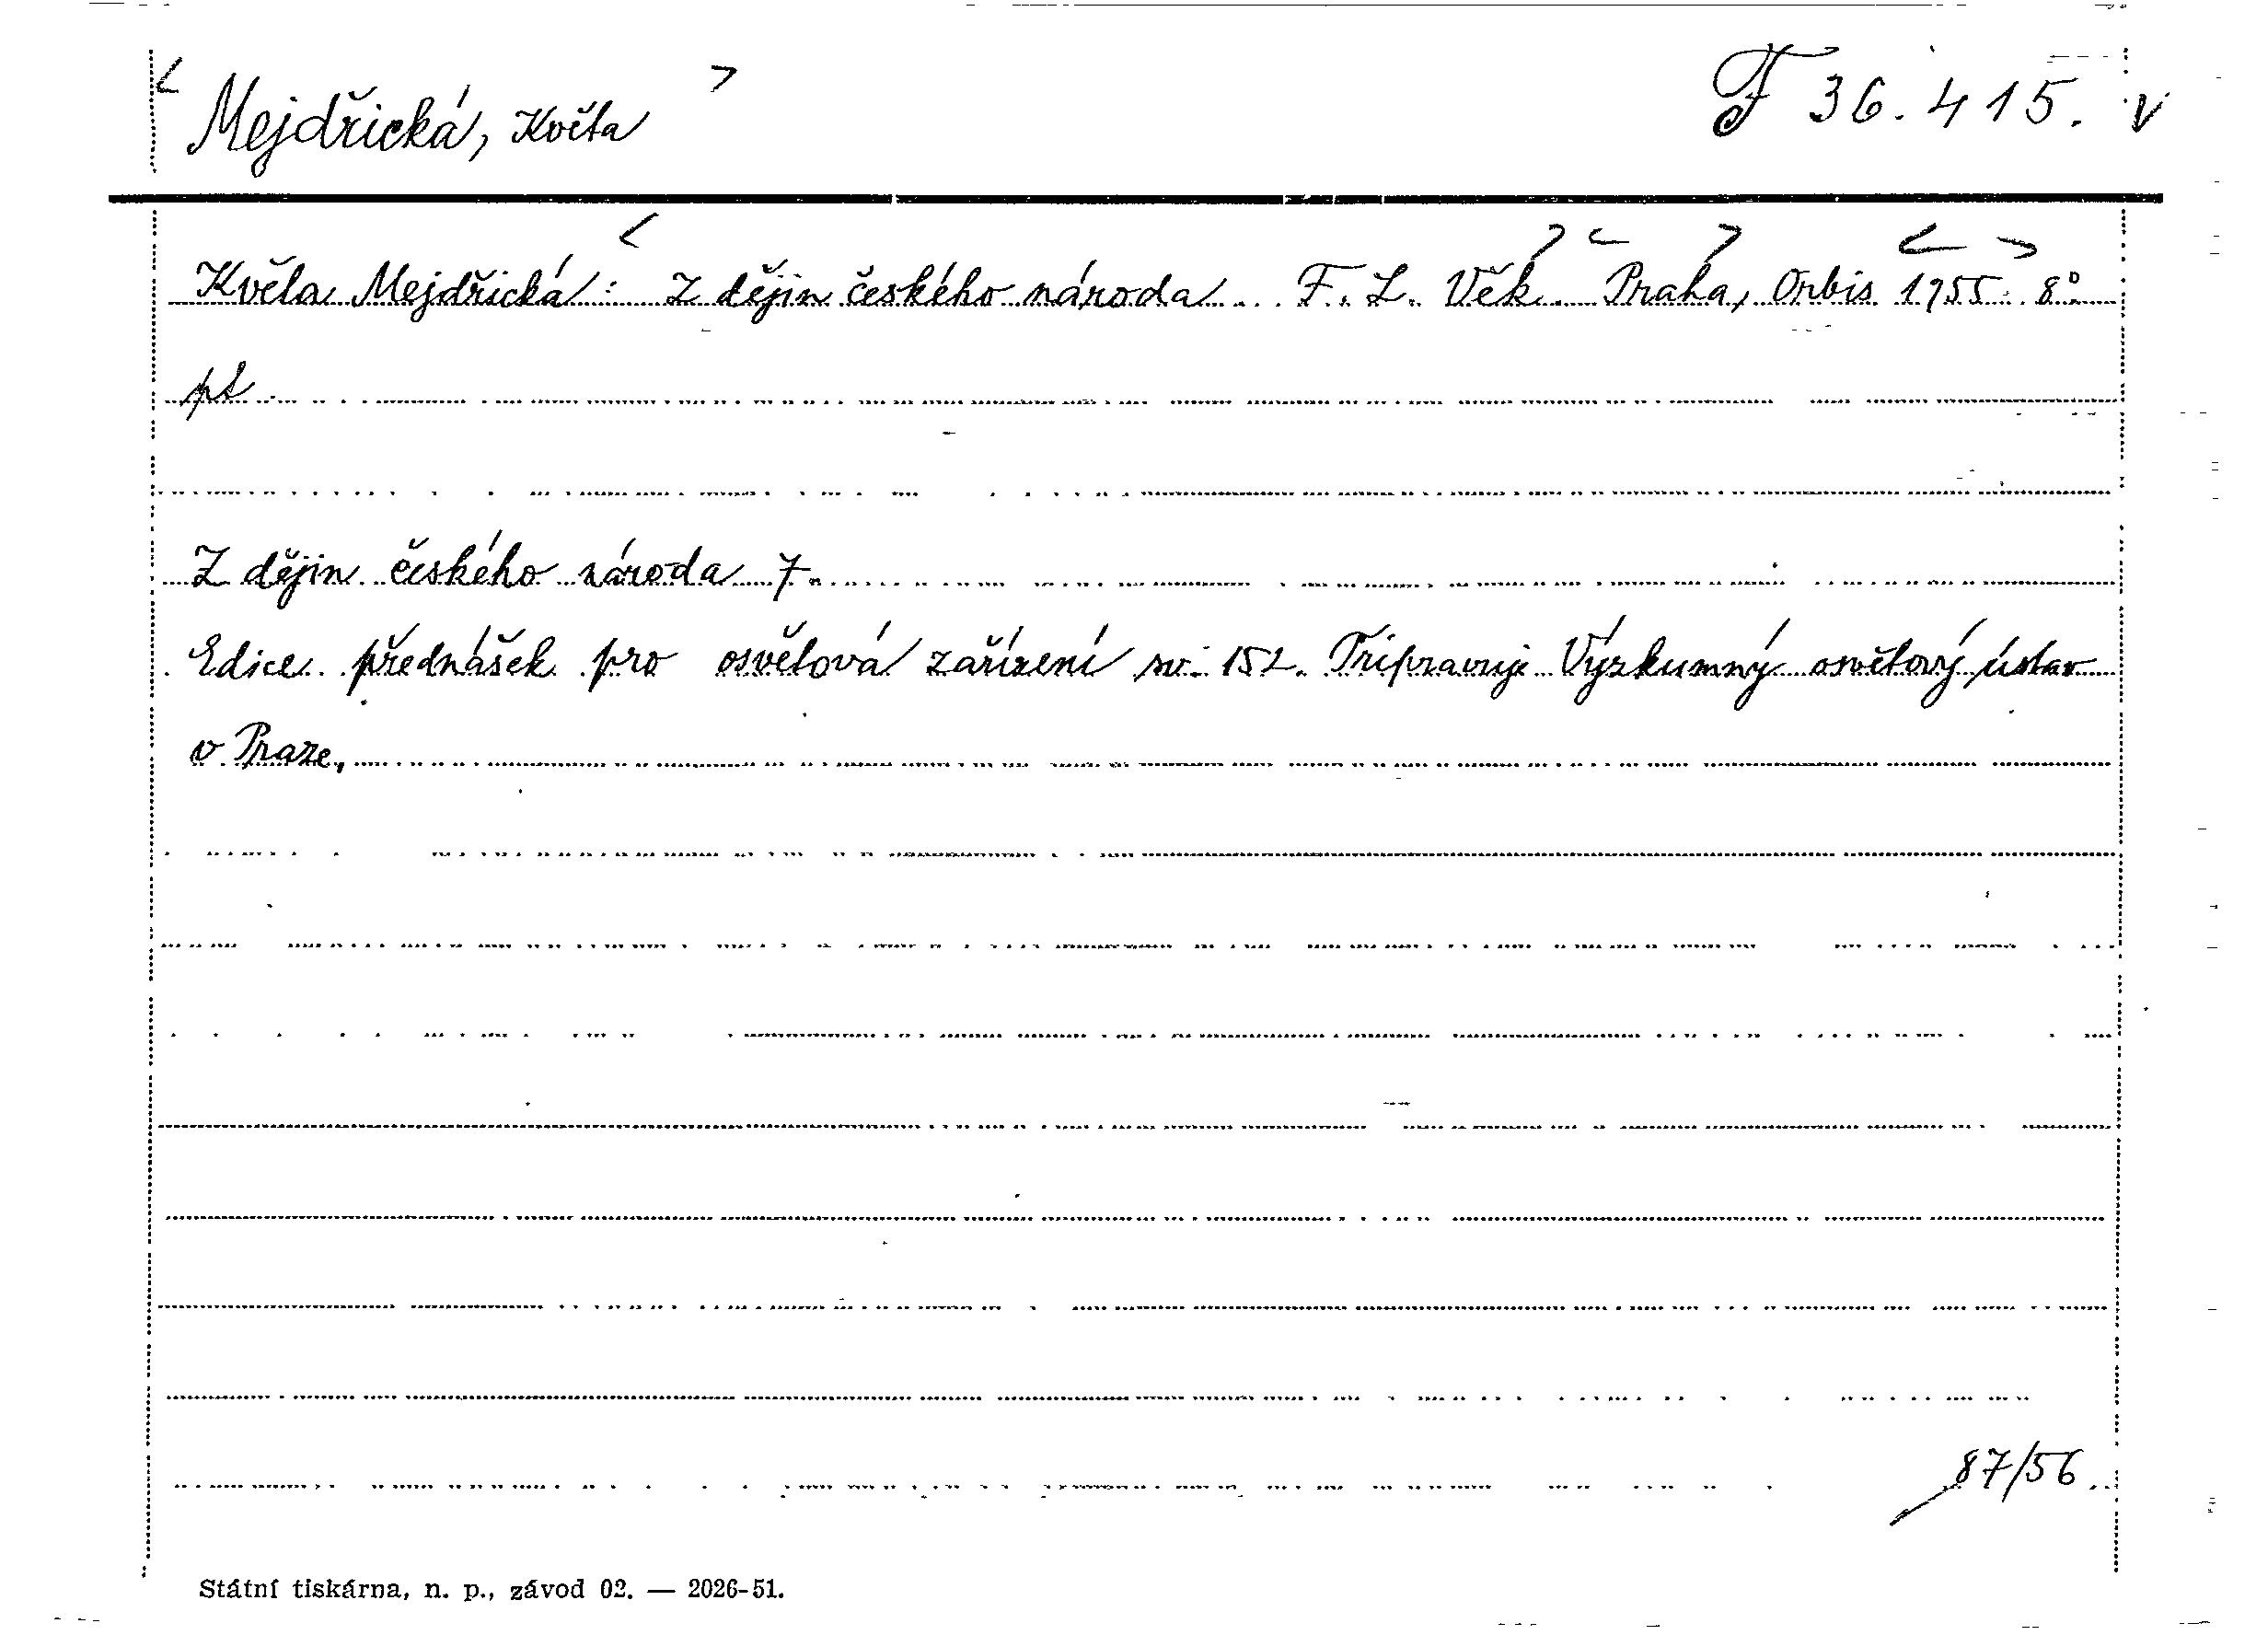 < Mejdřická, Květa > F 36.415. v
Květa Mejdřická: < Z dějin českého národa... F. L. Věk. > < Praha, > Orbis < 1955. > 8°
Z dějin českého národa 7.
Edice přednášek pro osvětová zařízení sv. 152. Připravuje Výzkumný osvětový ústav
v Praze.
87/56.
Státní tiskárna, n. p., závod 02. — 2026-51.